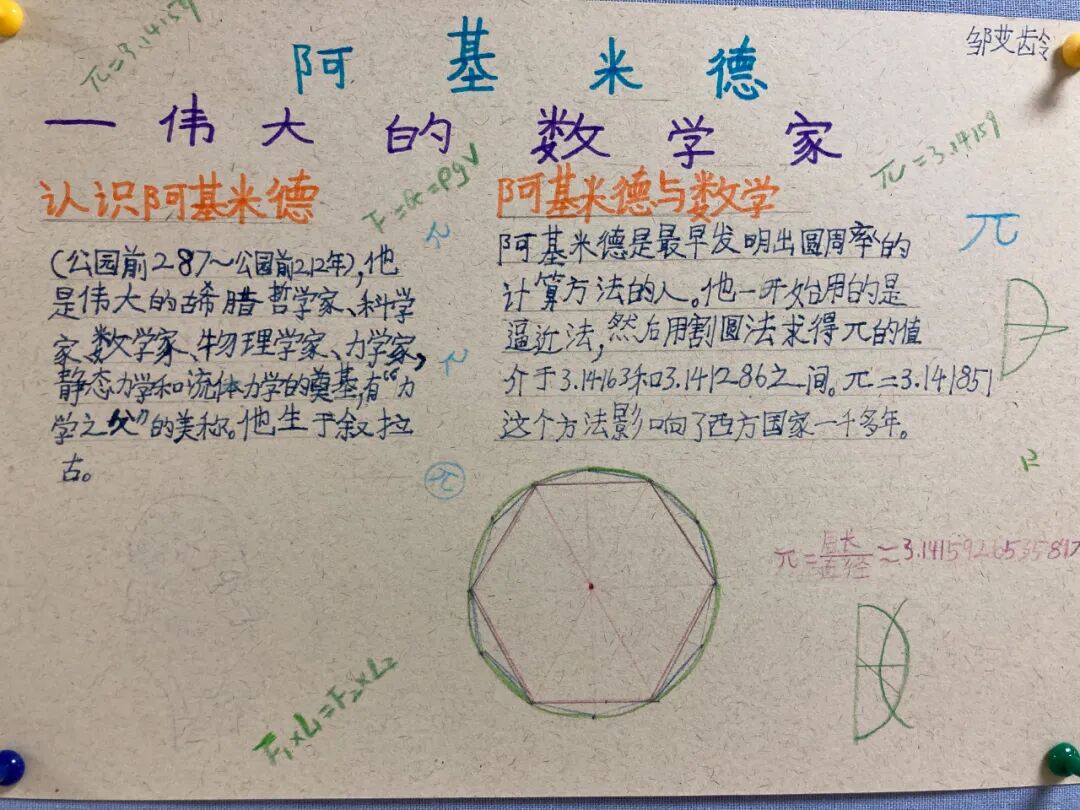 邹艾龄
π=3.14159
阿基米德
一伟大的数学家
π=3.14159
F=G=ρgV
认识阿基米德
(公园前287~公园前212年),他
是伟大的古希腊哲学家、科学
家、数学家、物理学家、力学家,
静态力学和流体力学的奠基,有“力
学之父”的美称。他生于叙拉
古。
阿基米德与数学
阿基米德是最早发明出圆周率的
计算方法的人。他一开始用的是
逼近法,然后用割圆法求得π的值
介于3.14163和3.141286之间。π=3.141851
这个方法影响了西方国家一千多年。
π
π
π
π
π=周长/直径≈3.1415926535897
F₁×L₁=F₂×L₂